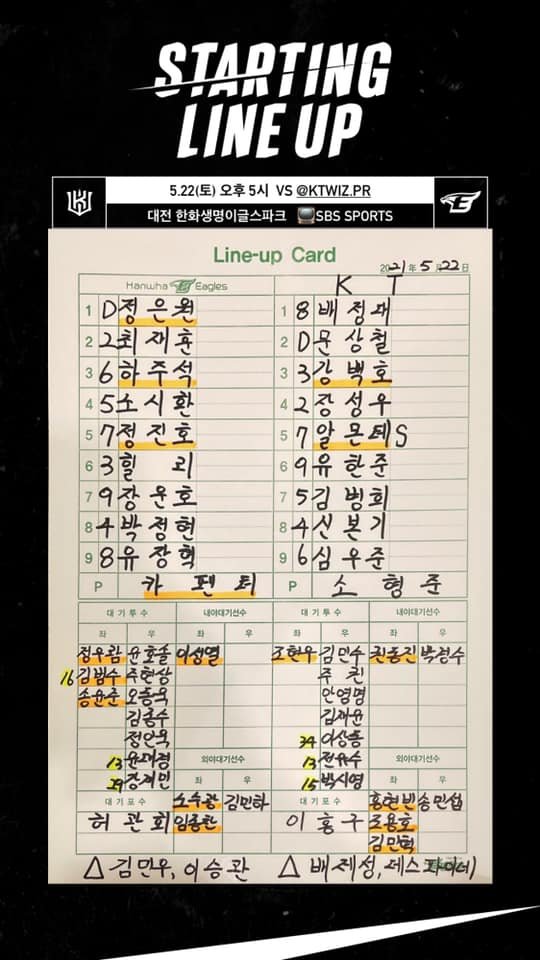 STARTING
LINE UP
5.22(토) 오후 5시 VS @KTWIZ.PR
대전 한화생명이글스파크 SBS SPORTS
Line-up Card
2021年 5月 22日
Hanwha Eagles
K T
1 D 정은원 1 8 배정대
2 2 최재훈 2 D 문상철
3 6 하주석 3 3 강백호
4 5 노시환 4 2 장성우
5 7 정진호 5 7 알몬테 S
6 3 힐리 6 9 유한준
7 9 장운호 7 5 김병희
8 4 박정현 8 4 신본기
9 8 유장혁 9 6 심우준
P 카펜터 P 소형준
대기투수 내야대기선수 대기투수 내야대기선수
좌 우 좌 우 좌 우 좌 우
정우람 윤호솔 이성열 조현우 김민수 천동진 박경수
16 김범수 주현상 주권
송윤준 오동욱 안영명
김종수 김재윤
정인욱 34 이상동
13 윤대경 외야대기선수 13 전유수 외야대기선수
29 장민재 좌 우 15 박시영 좌 우
대기포수 노수광 김민하 대기포수 홍현빈 송민섭
허관회 임종찬 이홍구 조용호
김민혁
△ 김민우, 이승관 △ 배제성, 데스파이네